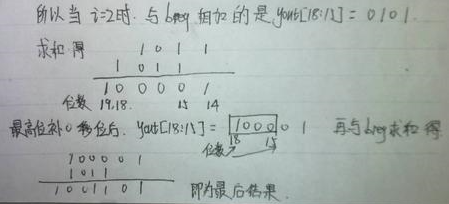 所以当 i=2时. 与breg 相加的是 yout[18:15] = 0101.
求和得
1 0 1 1
1 0 1 1
1 0 0 0 0 1
位数 19,18. 15 14
最高位补0移位后. yout[18:15] = 1000 0 1 再与breg求和得
位数 18 15
1 0 0 0 0 1
1 0 1 1
1 0 0 1 1 0 1 即为最后结果.